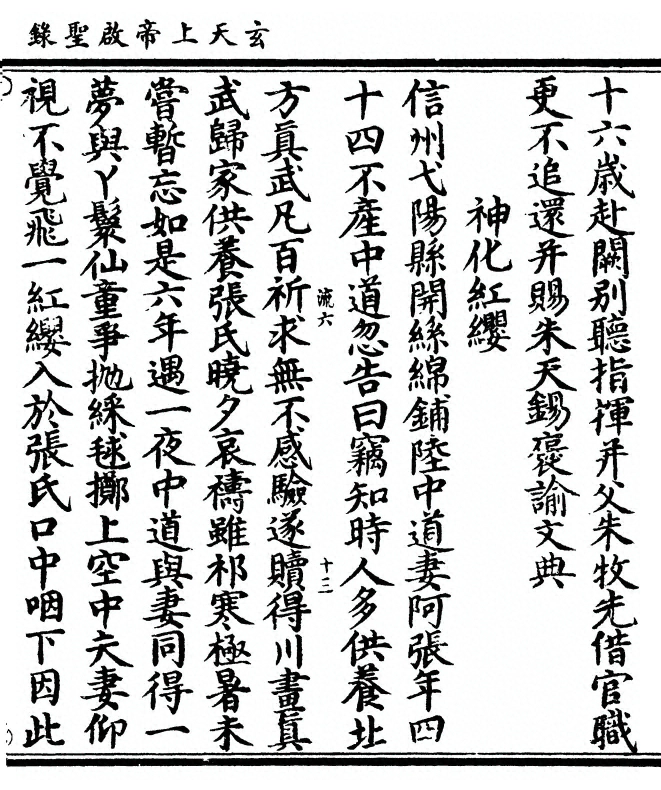 玄天上帝啟聖錄
十六歲赴闕別聽指揮并父朱牧先借官職
更不追還并賜朱天錫褒諭文典
神化紅纓
信州弋陽縣開絲綿鋪陸中道妻阿張年四
十四不產中道忽告曰竊知時人多供養北
方真武凡百祈求無不感驗遂贖得川畫真
流六
十三
武歸家供養張氏曉夕哀禱雖祁寒極暑未
嘗暫忘如是六年遇一夜中道與妻同得一
夢與丫鬟仙童爭拋綵毬擲上空中夫妻仰
視不覺飛一紅纓入於張氏口中咽下因此